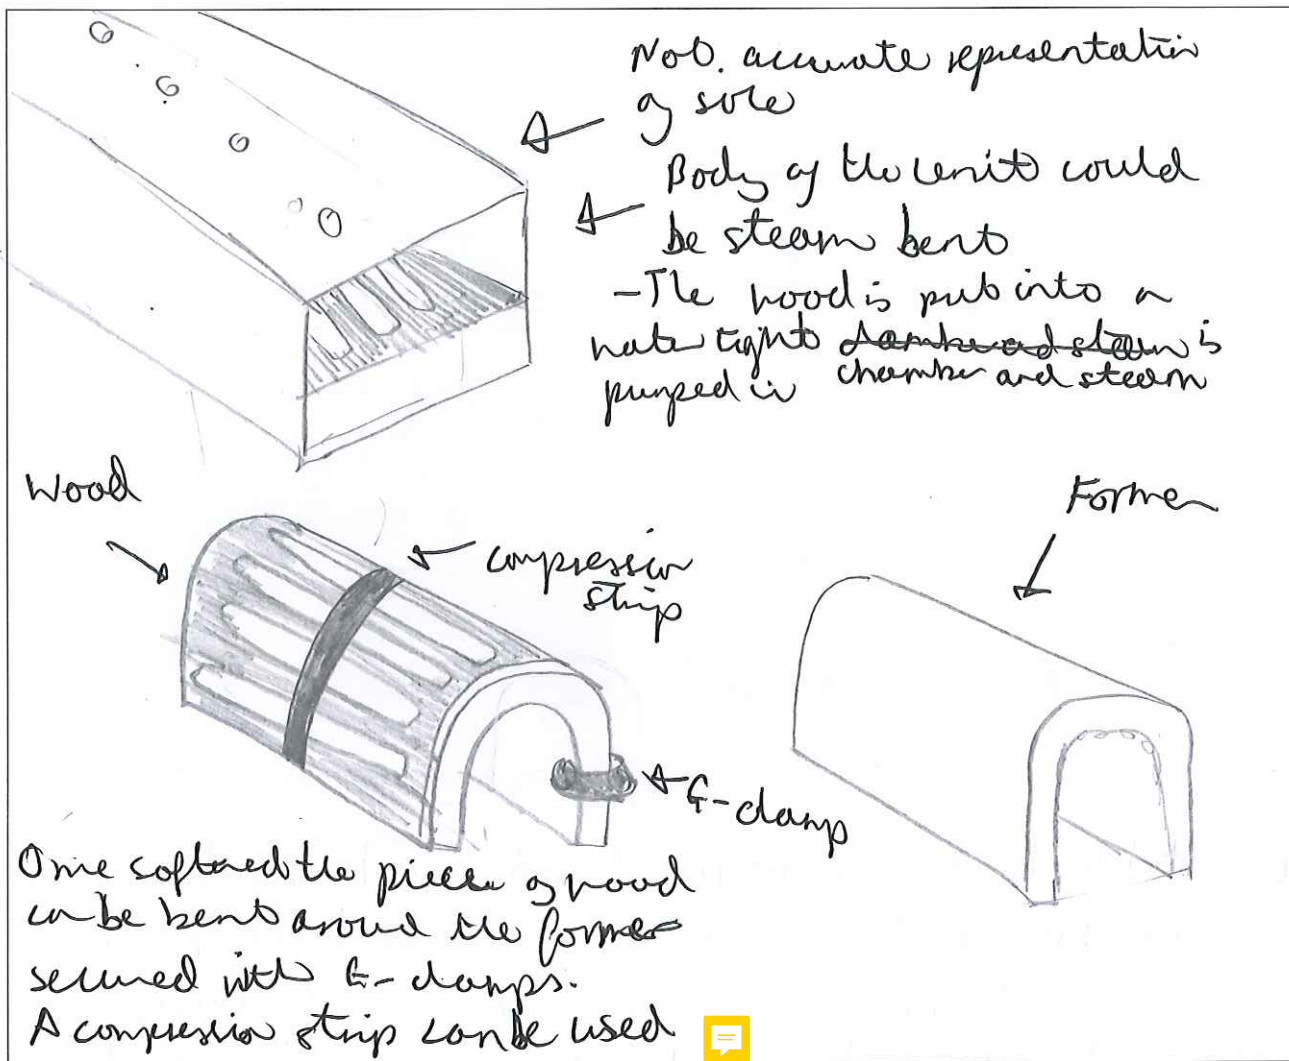 Not. accurate representation
of sole
Body of the unit could
be steam bent
- The wood is put into a
water tight chamber and steam is
pumped in chamber and steam
Wood
compression
strip
Former
G-clamp
Once softened the piece of wood
can be bent around the former
secured with G-clamps.
A compression strip can be used